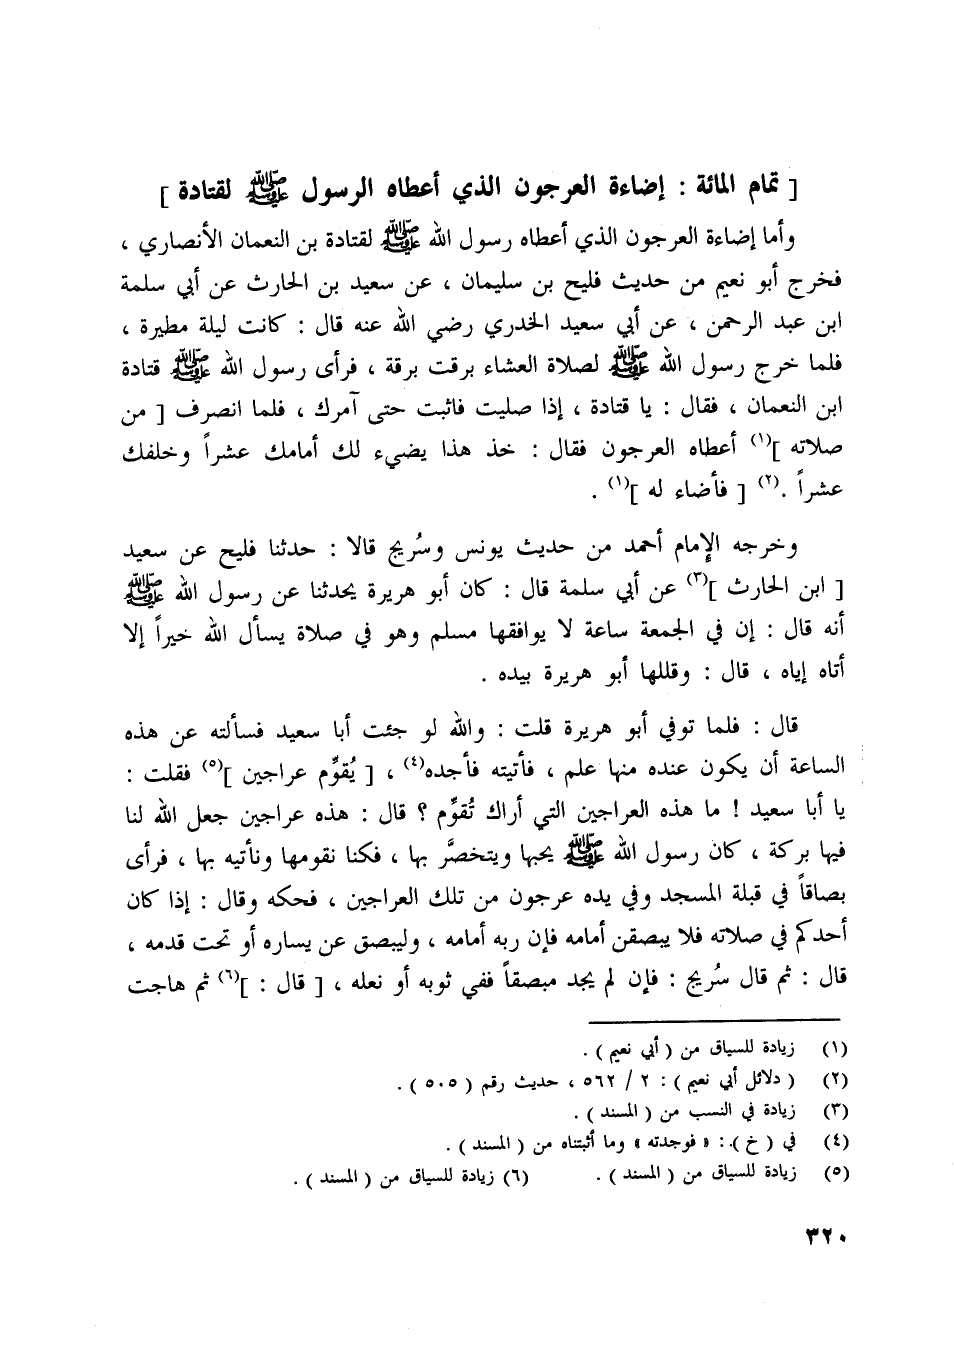 [ تمام المائة : إضاءة العرجون الذي أعطاه الرسول ﷺ لقتادة ]
وأما إضاءة العرجون الذي أعطاه رسول الله ﷺ لقتادة بن النعمان الأنصاري ،
فخرج أبو نعيم من حديث فليح بن سليمان ، عن سعيد بن الحارث عن أبي سلمة
ابن عبد الرحمن ، عن أبي سعيد الخدري رضي الله عنه قال : كانت ليلة مطيرة ،
فلما خرج رسول الله ﷺ لصلاة العشاء برقت برقة ، فرأى رسول الله ﷺ قتادة
ابن النعمان ، فقال : يا قتادة ، إذا صليت فاثبت حتى آمرك ، فلما انصرف [ من
صلاته ](١) أعطاه العرجون فقال : خذ هذا يضيء لك أمامك عشراً وخلفك
عشراً .(٢) [ فأضاء له ](١) .
وخرجه الإمام أحمد من حديث يونس وسُريج قالا : حدثنا فليح عن سعيد
[ ابن الحارث ](٣) عن أبي سلمة قال : كان أبو هريرة يحدثنا عن رسول الله ﷺ
أنه قال : إن في الجمعة ساعة لا يوافقها مسلم وهو في صلاة يسأل الله خيراً إلا
أتاه إياه ، قال : وقللها أبو هريرة بيده .
قال : فلما توفي أبو هريرة قلت : والله لو جئت أبا سعيد فسألته عن هذه
الساعة أن يكون عنده منها علم ، فأتيته فأجده(٤) ، [ يُقوِّم عراجين ](٥) فقلت :
يا أبا سعيد ! ما هذه العراجين التي أراك تُقوِّم ؟ قال : هذه عراجين جعل الله لنا
فيها بركة ، كان رسول الله ﷺ يحبها ويتخصَّر بها ، فكنا نقومها ونأتيه بها ، فرأى
بصاقاً في قبلة المسجد وفي يده عرجون من تلك العراجين ، فحكه وقال : إذا كان
أحدكم في صلاته فلا يبصقن أمامه فإن ربه أمامه ، وليبصق عن يساره أو تحت قدمه ،
قال : ثم قال سُريج : فإن لم يجد مبصقاً ففي ثوبه أو نعله ، [ قال : ](٦) ثم هاجت
(١) زيادة للسياق من ( أبي نعيم ) .
(٢) ( دلائل أبي نعيم ) : ٢ / ٥٦٢ ، حديث رقم ( ٥٠٥ ) .
(٣) زيادة في النسب من ( المسند ) .
(٤) في ( خ ) : « فوجدته » وما أثبتناه من ( المسند ) .
(٥) زيادة للسياق من ( المسند ) . (٦) زيادة للسياق من ( المسند ) .
٣٢٠